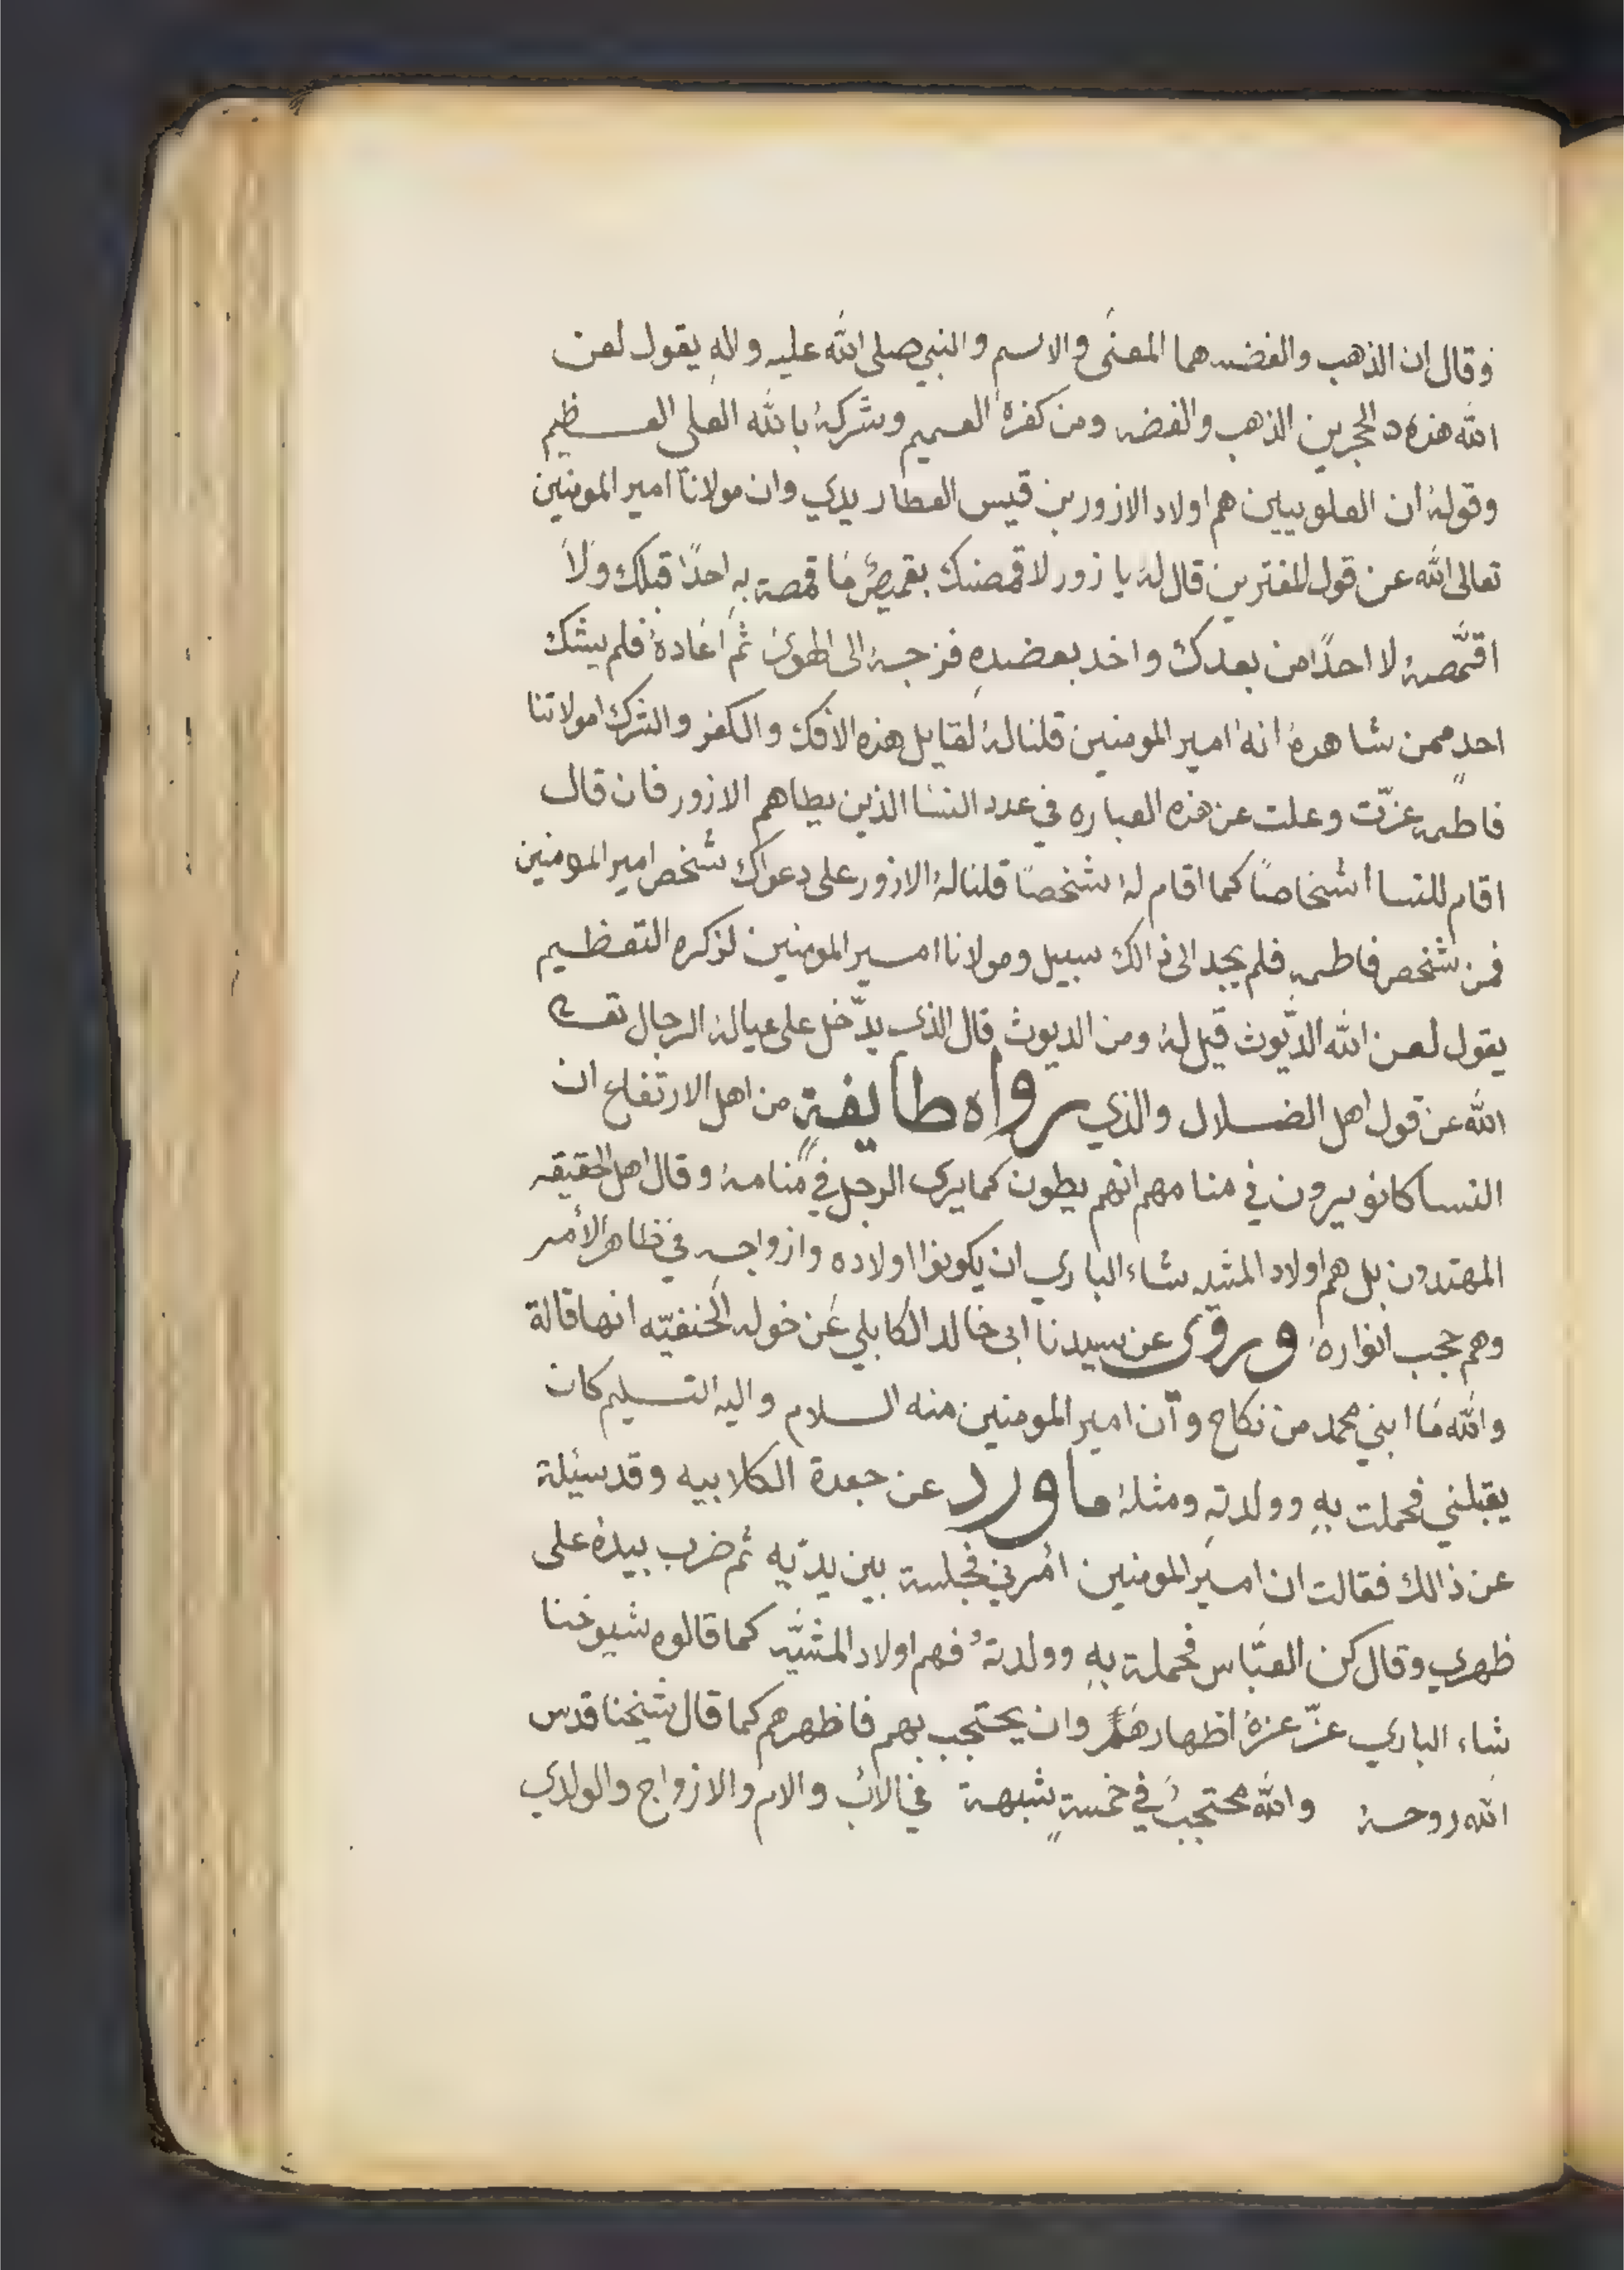 وقال ان الذهب والفضه هما المعنى والاسم والنبي صلى الله عليه واله يقول لعن
الله هذه الحجرين الذهب والفضه ومن كفره العميم وشركهُ بالله العلي العظيم
وقولهُ ان العلويين هم اولاد الازور بن قيس العطاريدي وان مولانا امير المومنين
تعالى الله عن قول المفترين قال لهُ يا زور لاقمصنك بقميصٍ ما قمصة بهِ احدًا قبلك ولا
اقمّصهُ لا احدًا من بعدك واخد بعضدهِ فزجهُ الى الهوى ثم اعادهُ فلم يشك
احدٍ ممن شاهدهُ انه امير المومنين قلنا لهُ لقايل هذه الافك والكفر والشرك امولاتنا
فاطمه عزّت وعلت عن هذه العباره في عدد النسا الذين يطاهم الازور فان قال
اقام للنسا اشخاصًا كما اقام لهُ شخصًا قلنا لهُ الازور على دعواك شخص امير المومنين
فمن شخص فاطمه فلم يجد الى ذالك سبيل ومولانا امير المومنين لذكره التعظيم
يقول لعن الله الدّيوث قيل لهُ ومن الديوث قال الذي يدّخل على عيالهُ الرجال تع
الله عن قول اهل الضلال والذي رواه طايفةٍ من اهل الارتفاع ان
النسا كانو يرون في منامهم انهم يطون كما يرى الرجل في منامهُ وقال اهل الحقيقه
المهتدون بل هم اولاد المشيه شاء الباري ان يكونوا اولاده وازواجه في ظاهر الأمر
وهم حجب انوارهُ وروى عن سيدنا ابى خالد الكابلي عن خوله الحنفيّه انها قالة
والله ما ابني محمد من نكاح وان امير المومنين منه السلام واليه التسليم كان
يقبلني فحملت بهِ وولدتهِ ومثلهُ ما ورد عن جعدة الكلابيه وقد سيلة
عن ذالك فقالت ان امير المومنين امرني فجلسة بين يدّيه ثم ضرب بيدهُ على
ظهري وقال كن العبّاس فحملة بهِ وولدتهُ فهم اولاد المشيّه كما قالوه شيوخنا
شاء الباري عزّ عزهُ اظهارهم وان يحتجب بهم فاظهرهم كما قال شيخنا قدس
الله روحهُ والله محتجبٌ في خمسةٍ شبهة في الاب والام والازواج والولدي